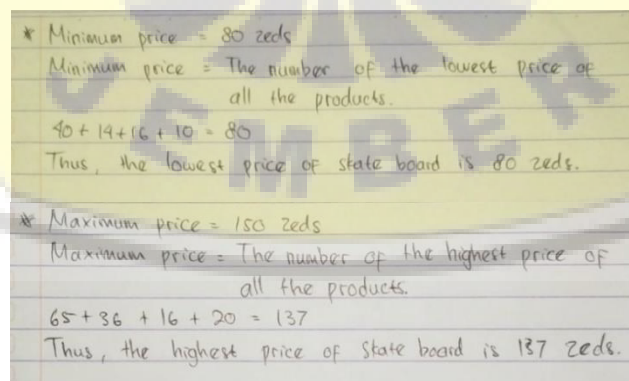 * Minimum price = 80 zeds
Minimum price = The number of the lowest price of
all the products.
40 + 14 + 16 + 10 = 80
Thus, the lowest price of skate board is 80 zeds.
* Maximum price = 150 zeds
Maximum price = The number of the highest price of
all the products.
65 + 36 + 16 + 20 = 137
Thus, the highest price of skate board is 137 zeds.
JEMBER